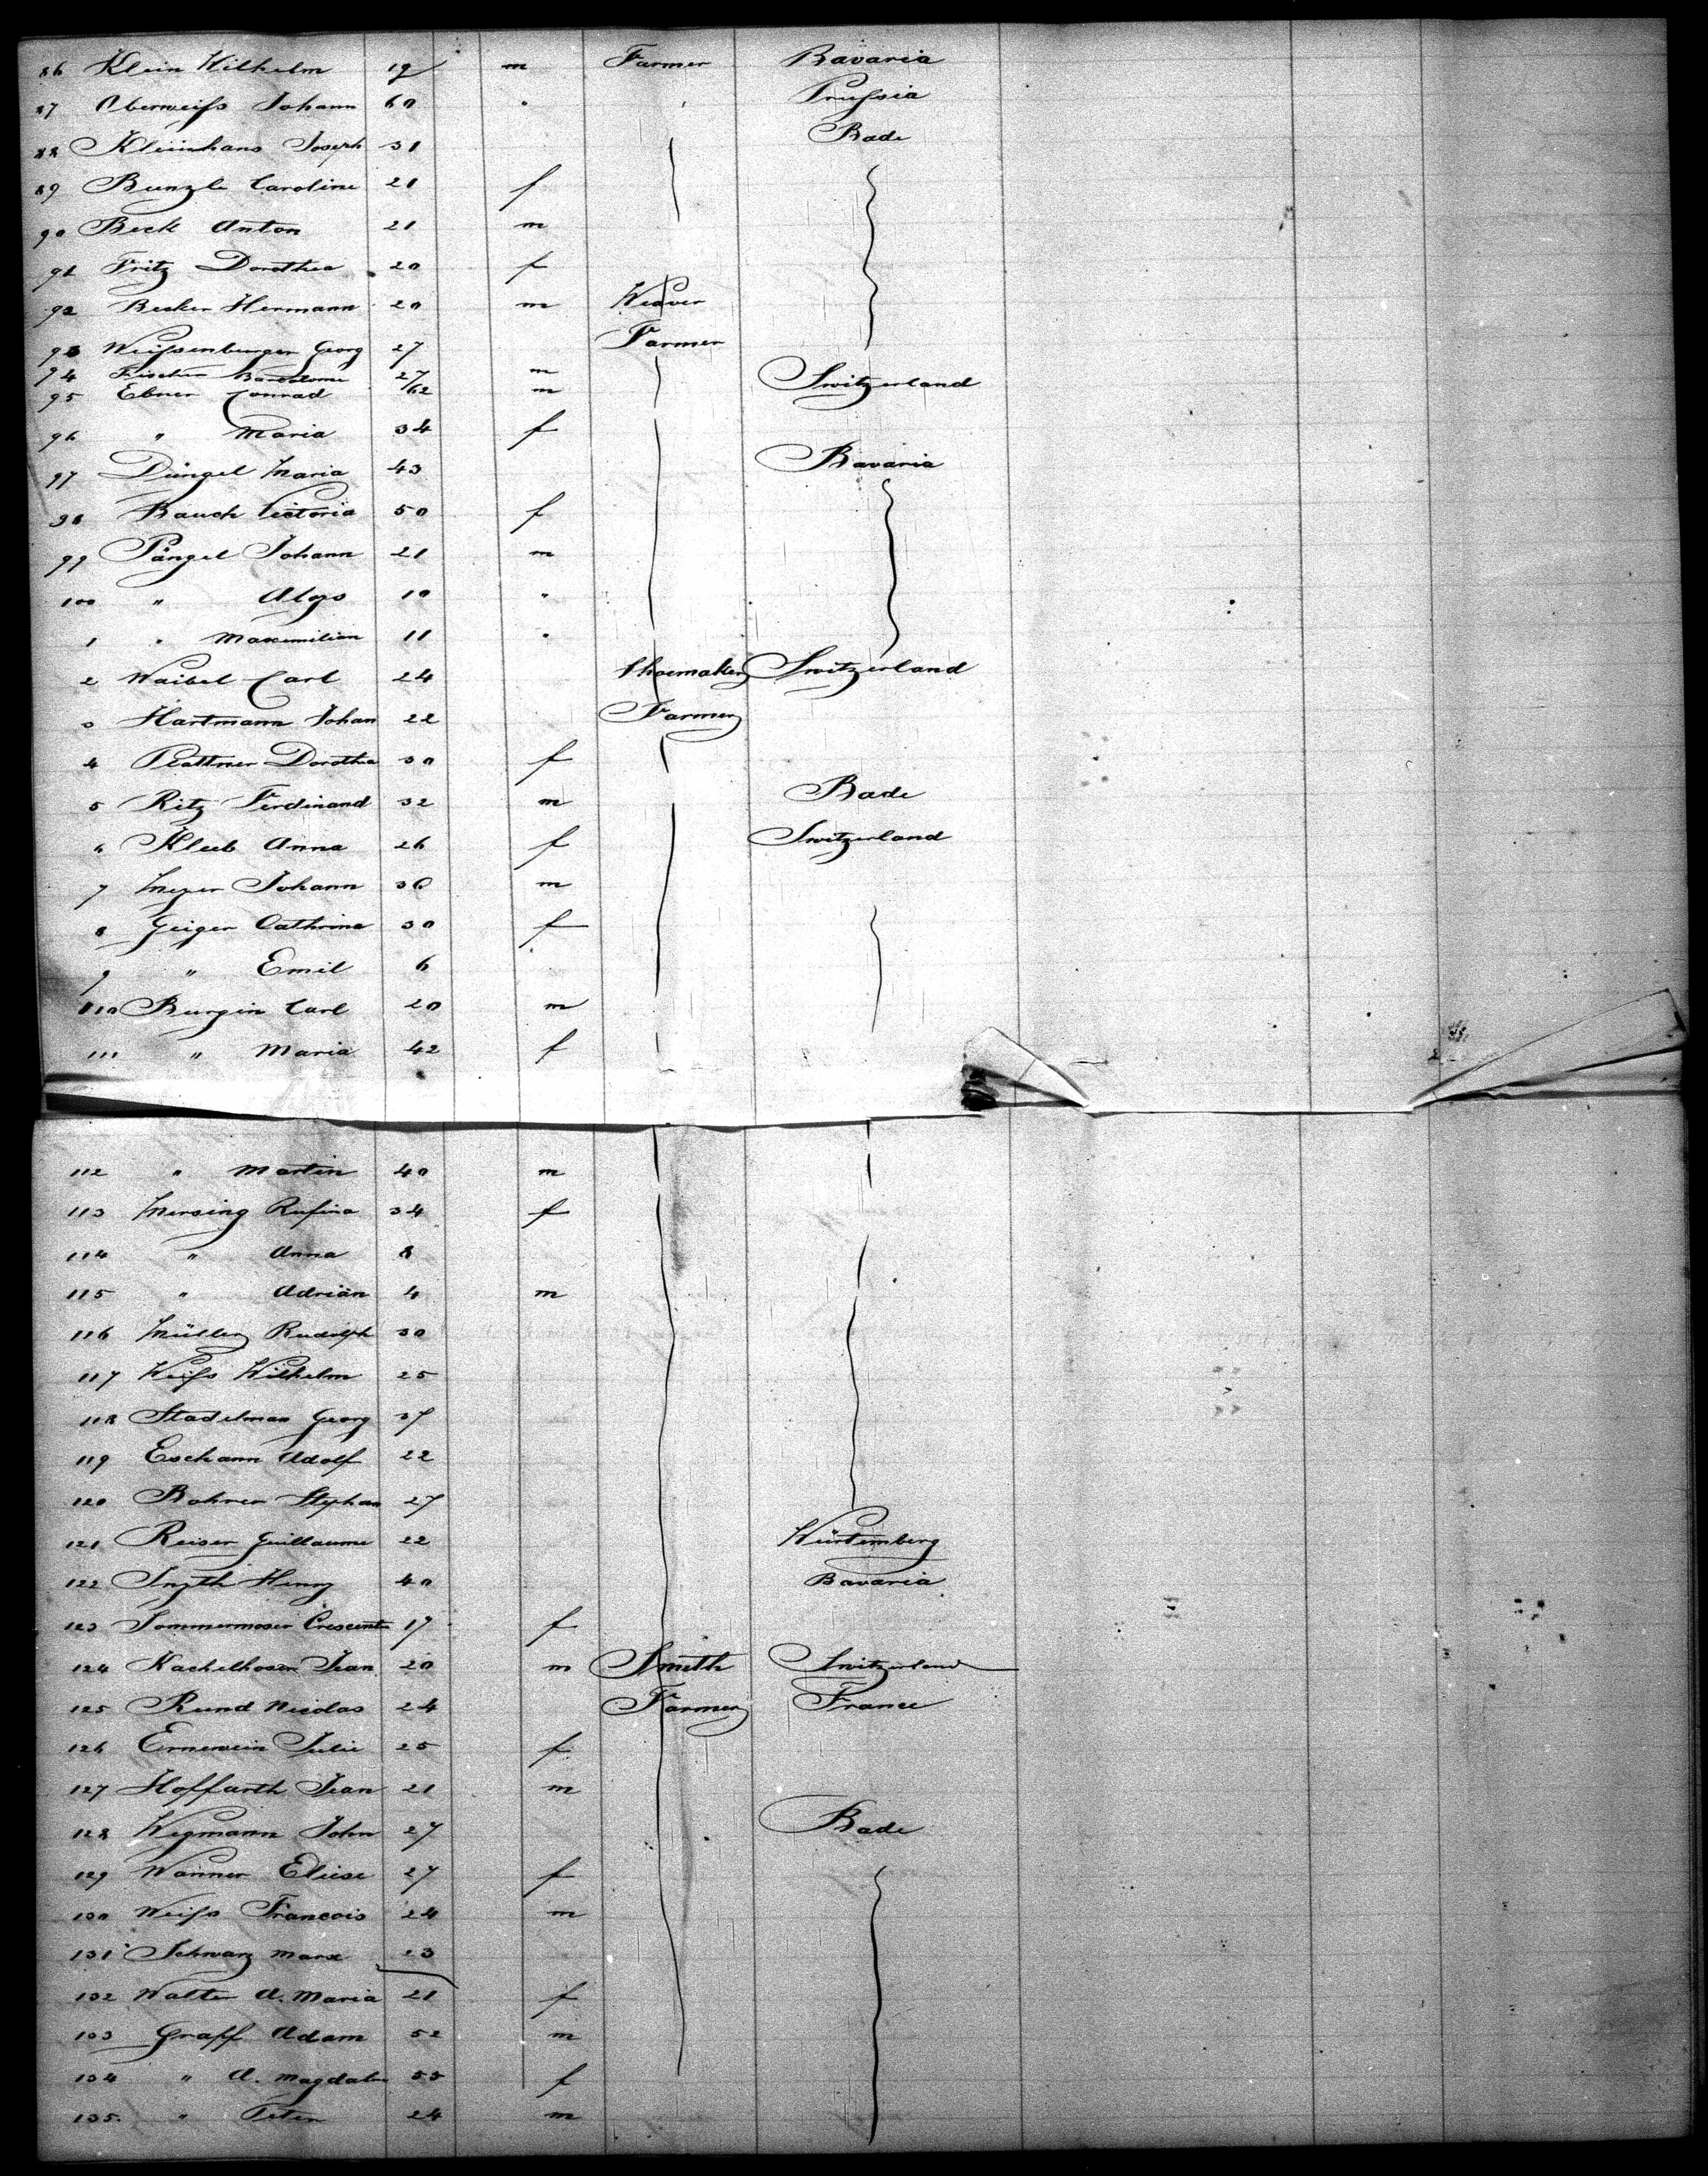 86 Klein Wilhelm 19 m Farmer Bavaria
87 Oberweiſs Johann 60 " " Pruſsia
88 Kleinhans Joseph 31 Bade
89 Bunzle Caroline 21 f
90 Beck Anton 21 m
91 Fritz Dorothea 20 f
92 Becker Hermann 20 m Weaver
93 Weiſsenburger Georg 27 Farmer
94 Fischer Bartolome 27 m Switzerland
95 Ebner Conrad 62 m
96 " Maria 34 f
97 Düngel Maria 43 Bavaria
98 Bauch Victoria 50 f
99 Pängel Johann 21 m
100 " Aloys 10 "
1 " Maximilian 11 "
2 Waibel Carl 24 Shoemaker Switzerland
3 Hartmann Johan 22 Farmer
4 Plattner Dorothea 30 f
5 Ritz Ferdinand 32 m Bade
6 Kleeb Anna 26 f Switzerland
7 Meyer Johann 36 m
8 Geiger Cathrina 30 f
9 " Emil 6
110 Burgin Carl 20 m
111 " Maria 42 f
112 " Martin 40 m
113 Mersing Rufina 34 f
114 " Anna 8
115 " Adrian 4 m
116 Müller Rudolph 30
117 Weiſs Wilhelm 25
118 Stadelman Georg 37
119 Eschann Adolf 22
120 Bohrer Stephan 27
121 Reiser Guillaume 22 Würtemberg
122 Henry 40 Bavaria
123 Sommermoser Crescent 17 f
124 Kachelhoser Jean 20 m Smith Switzerland
125 Rund Nicolas 24 Farmer France
126 Ernewein Julie 25 f
127 Hoffarth Jean 21 m
128 Wegmann John 27 Bade
129 Wanner Eliese 27 f
130 Weiſs Francois 24 m
131 Schwarz Marx 23
132 Walter A. Maria 21 f
133 Graff Adam 52 m
134 " A. Magdalen 55 f
135. " Peter 24 m